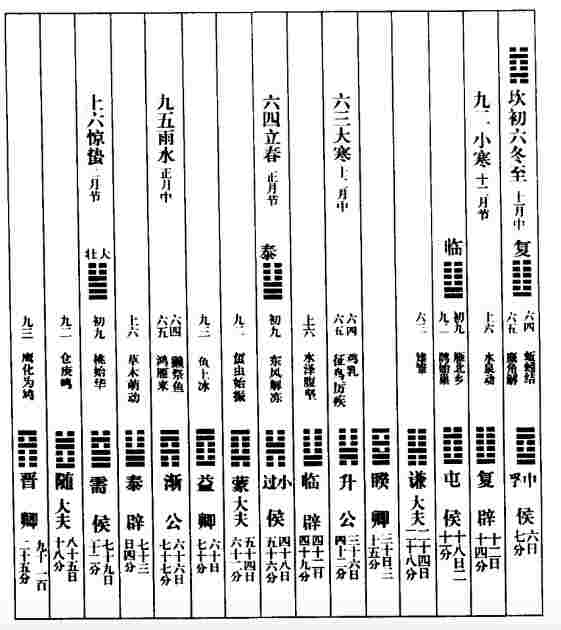 坎初六冬至 十一月中
复
六四 蚯蚓结
六五 麋角解
中孚 侯
六日
七分
九二小寒 十二月节
上六 水泉动
复 辟
十二日
十四分
临
初九 雁北乡
九二 鹊始巢
屯 侯
十八日二
十一分
六三 雉雊
谦 大夫
二十四日
二十八分
睽 卿
三十日三
十五分
六三大寒 十二月中
六四 鸡乳
六五 征鸟厉疾
升 公
三十六日
四十二分
上六 水泽腹坚
临 辟
四十二日
四十九分
六四立春 正月节
泰
初九 东风解冻
小过 侯
四十八日
五十六分
九二 蛰虫始振
蒙 大夫
五十四日
六十三分
九三 鱼上冰
益 卿
六十日
七十分
九五雨水 正月中
六四 獭祭鱼
六五 鸿雁来
渐 公
六十六日
七十七分
上六 草木萌动
泰 辟
七十三
日四分
上六惊蛰 二月节
大壮
初九 桃始华
需 侯
七十九日
九二 仓庚鸣
随 大夫
八十五日
十八分
九三 鹰化为鸠
晋 卿
九十一日
二十五分